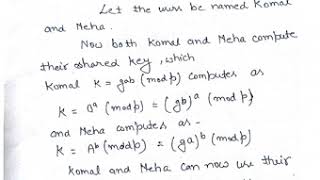 Let the users be named Komal
and Meha.
Now both Komal and Meha compute
their shared key, which
Komal K = gab (mod p) computes as
K = Bᵃ (mod p) = (gb)ᵃ (mod p)
and Meha computes as -
K = Aᵇ (mod p) = (ga)ᵇ (mod p)
Komal and Meha can now use their